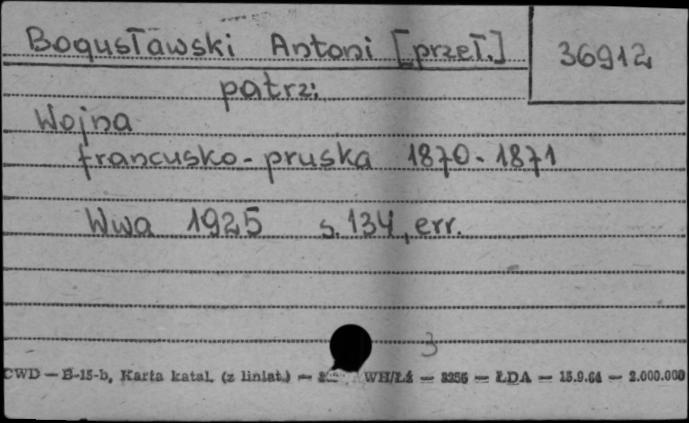 Bogusławski Antoni [przeł.]
36912
patrz:
Wojna
francusko-pruska 1870-1871
Wwa 1925 s. 134, err.
3
CWD — B-15-b, Karta katal. (z liniat.) — WH/Łź — 3256 — ŁDA — 15.9.64 — 2.000.000